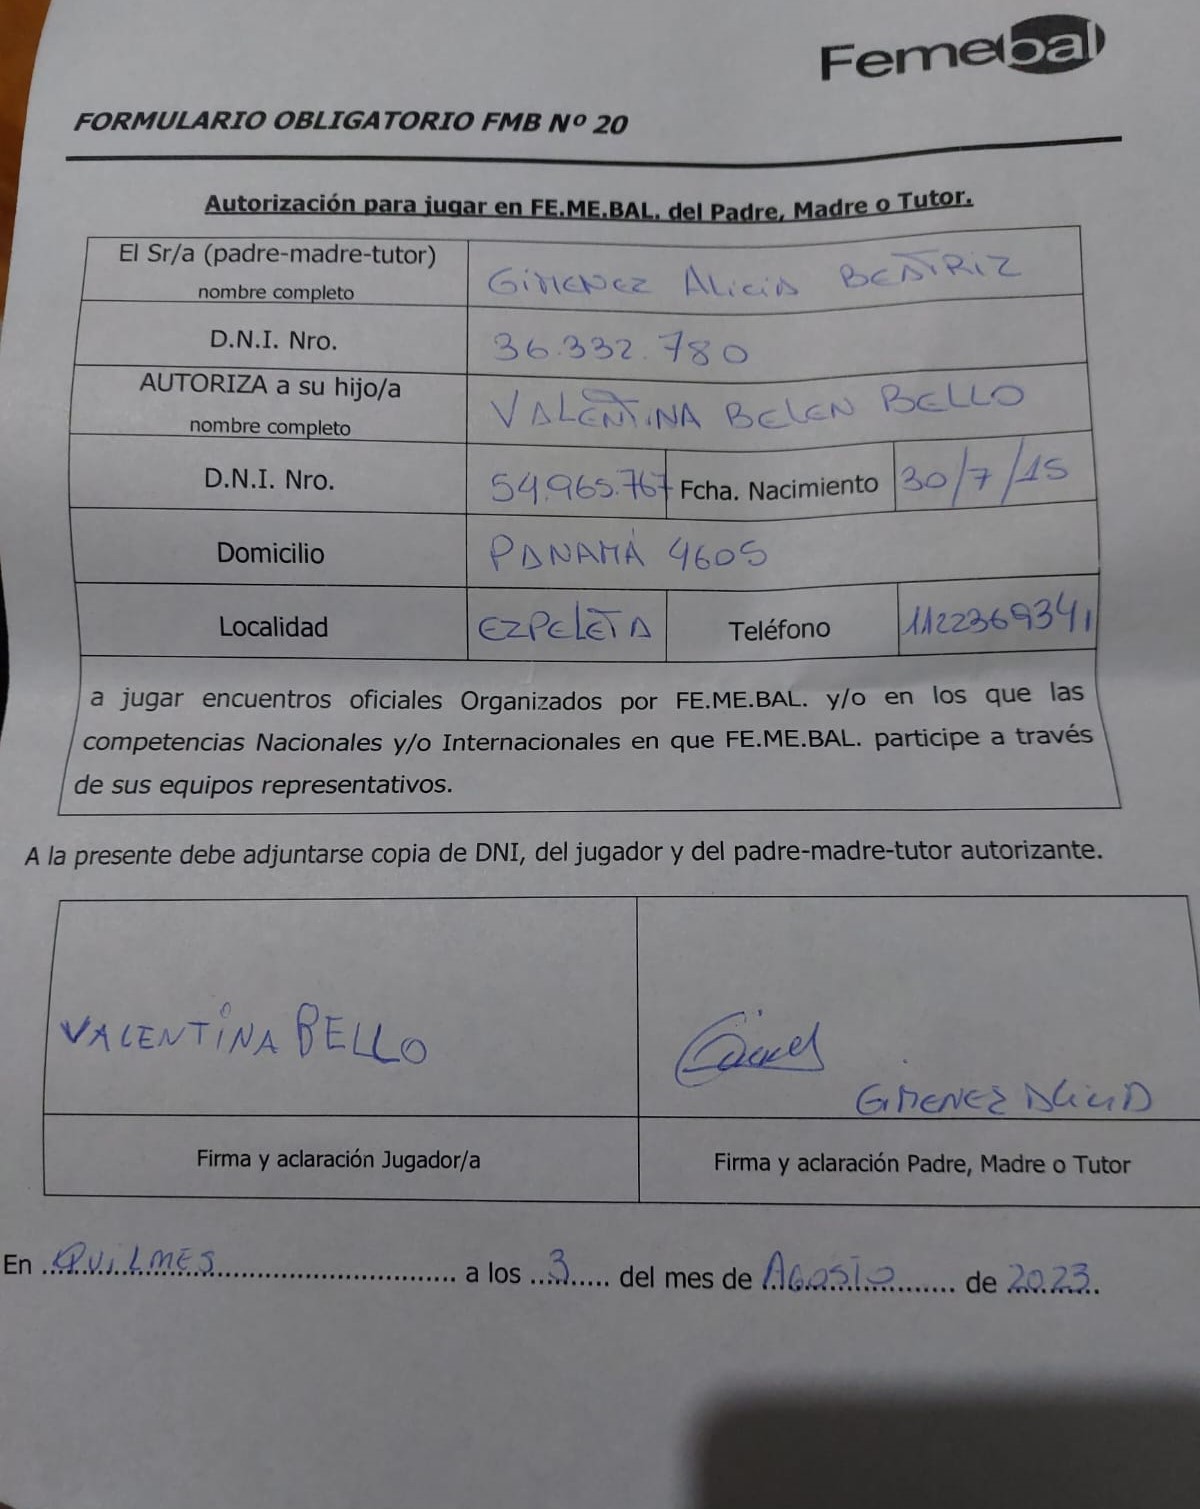 Femebal
FORMULARIO OBLIGATORIO FMB Nº 20
Autorización para jugar en FE.ME.BAL. del Padre, Madre o Tutor.
El Sr/a (padre-madre-tutor)
nombre completo
GiMENEZ AliciA BEATRIZ
D.N.I. Nro.
36.332.780
AUTORIZA a su hijo/a
nombre completo
VALENTiNA BELEN BELLO
D.N.I. Nro.
54.965.767
Fcha. Nacimiento
30/7/15
Domicilio
PANAMÁ 4605
Localidad
EZPELETA
Teléfono
1122369341
a jugar encuentros oficiales Organizados por FE.ME.BAL. y/o en los que las
competencias Nacionales y/o Internacionales en que FE.ME.BAL. participe a través
de sus equipos representativos.
A la presente debe adjuntarse copia de DNI, del jugador y del padre-madre-tutor autorizante.
VALENTiNA BELLO
GiMENEZ AliciA
Firma y aclaración Jugador/a
Firma y aclaración Padre, Madre o Tutor
En QUiLMES a los 3 del mes de AGOSTO de 2023.